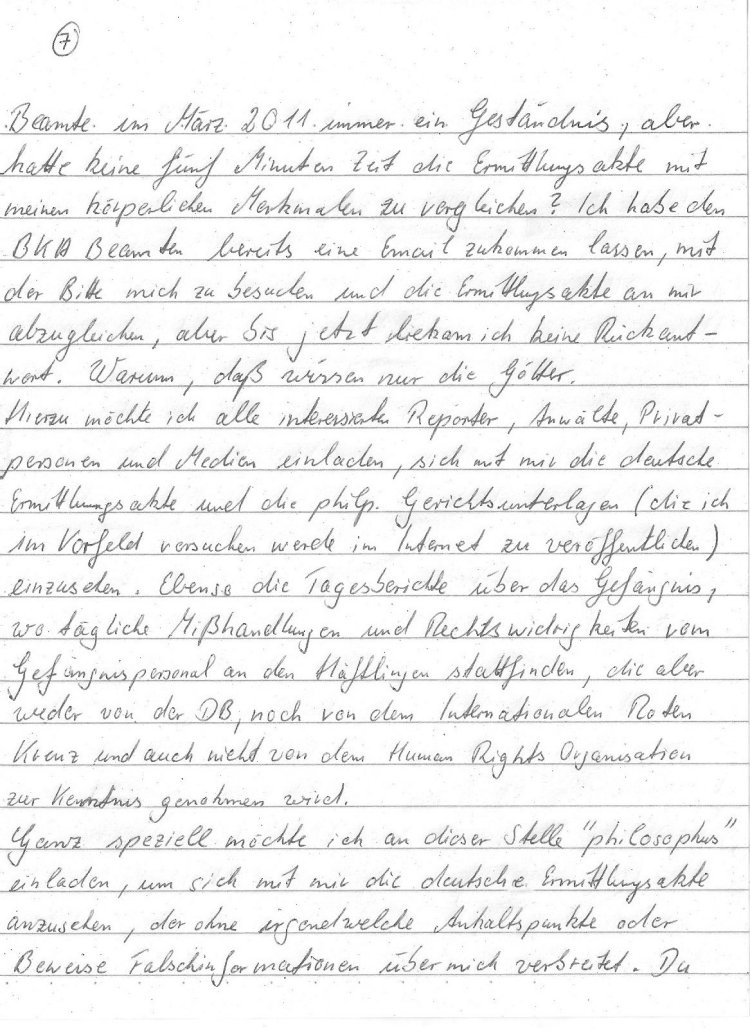 7
Beamte im März 2011 immer ein Geständnis, aber
hatte keine fünf Minuten Zeit die Ermittlungsakte mit
meinen körperlichen Merkmalen zu vergleichen? Ich habe den
BKA Beamten bereits eine Email zukommen lassen, mit
der Bitte mich zu besuchen und die Ermittlungsakte an mir
abzugleichen, aber bis jetzt bekam ich keine Rückant-
wort. Warum, daß wissen nur die Götter.
Hierzu möchte ich alle interessierten Reporter, Anwälte, Privat-
personen und Medien einladen, sich mit mir die deutsche
Ermittlungsakte und die philp. Gerichtsunterlagen (die ich
im Vorfeld versuchen werde im Internet zu veröffentlichen)
einzusehen. Ebenso die Tagesberichte über das Gefängnis,
wo tägliche Mißhandlungen und Rechtswidrigkeiten vom
Gefängnispersonal an den Häftlingen stattfinden, die aber
weder von der DB, noch von dem Internationalen Roten
Kreuz und auch nicht von dem Human Rights Organisation
zur Kenntnis genohmen wird.
Ganz speziell möchte ich an dieser Stelle "philosophus"
einladen, um sich mit mir die deutsche Ermittlungsakte
anzusehen, der ohne irgendwelche Anhaltspunkte oder
Beweise Falschinformationen über mich verbreitet. Du